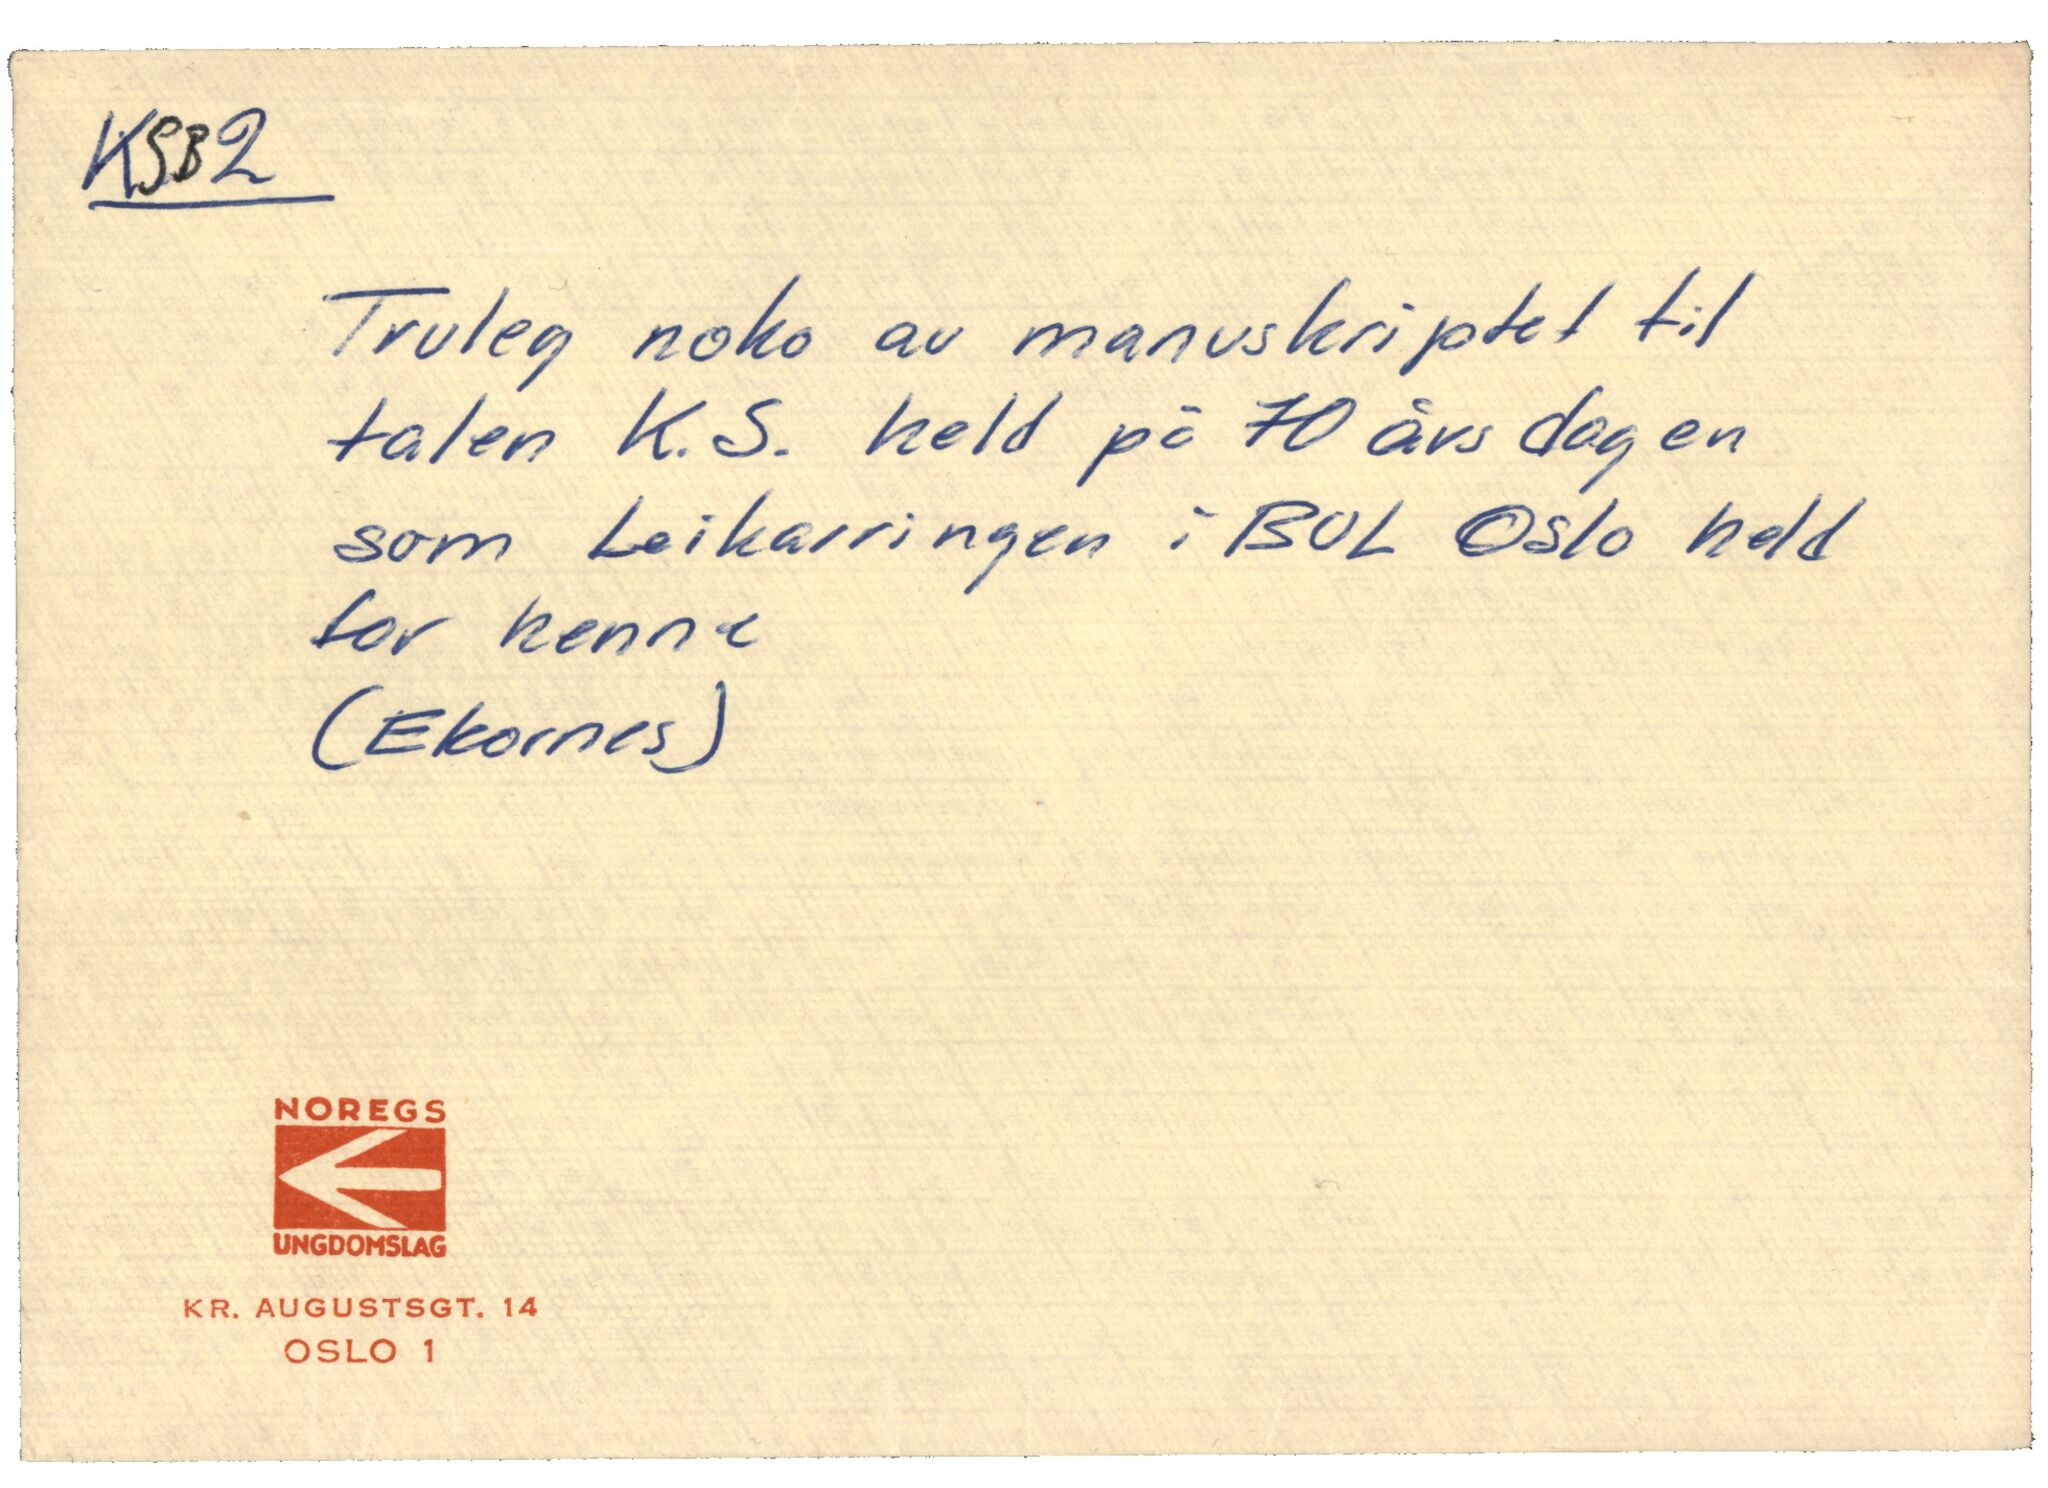 KSB2
Truleg noko av manuskriptet til
talen K.S. held på 70 årsdagen
som Leikarringen i BUL Oslo held
for henne
(Ekornes)
NOREGS
UNGDOMSLAG
KR. AUGUSTSGT. 14
OSLO 1